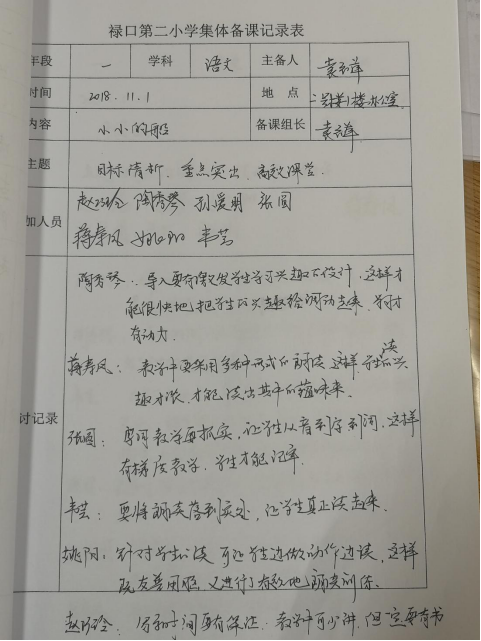 禄口第二小学集体备课记录表
年段 一 学科 语文 主备人 袁云萍
时间 2018.11.1 地点 二 楼办公室
内容 小小的船 备课组长 袁云萍
主题 目标清晰、重点突出、高效课堂.
加人员 赵 玲 陶秀琴 孙爱明 张圆
蒋春凤 姚 阳 韦芸
讨记录
陶秀琴:导入要有激发学生学习兴趣 设计,这样才
能很快地把学生的兴趣给调动起来,学习才
有动力.
蒋春凤:教学中要采用多种形式的朗读,这样,学生的读兴
趣才浓,才能读出其中的韵味来.
张圆:要词教学要抓实,让学生从音到字到词,这样
有梯度教学,学生才能记牢.
韦芸:要将朗读落到实处,让学生真正读起来.
姚阳:针对学生的读 可让学生边做动作边读,这样
既友善用脑,又进行了有效地朗读训练.
赵 玲: 词要有 . 教学中可少讲,但一定要有书